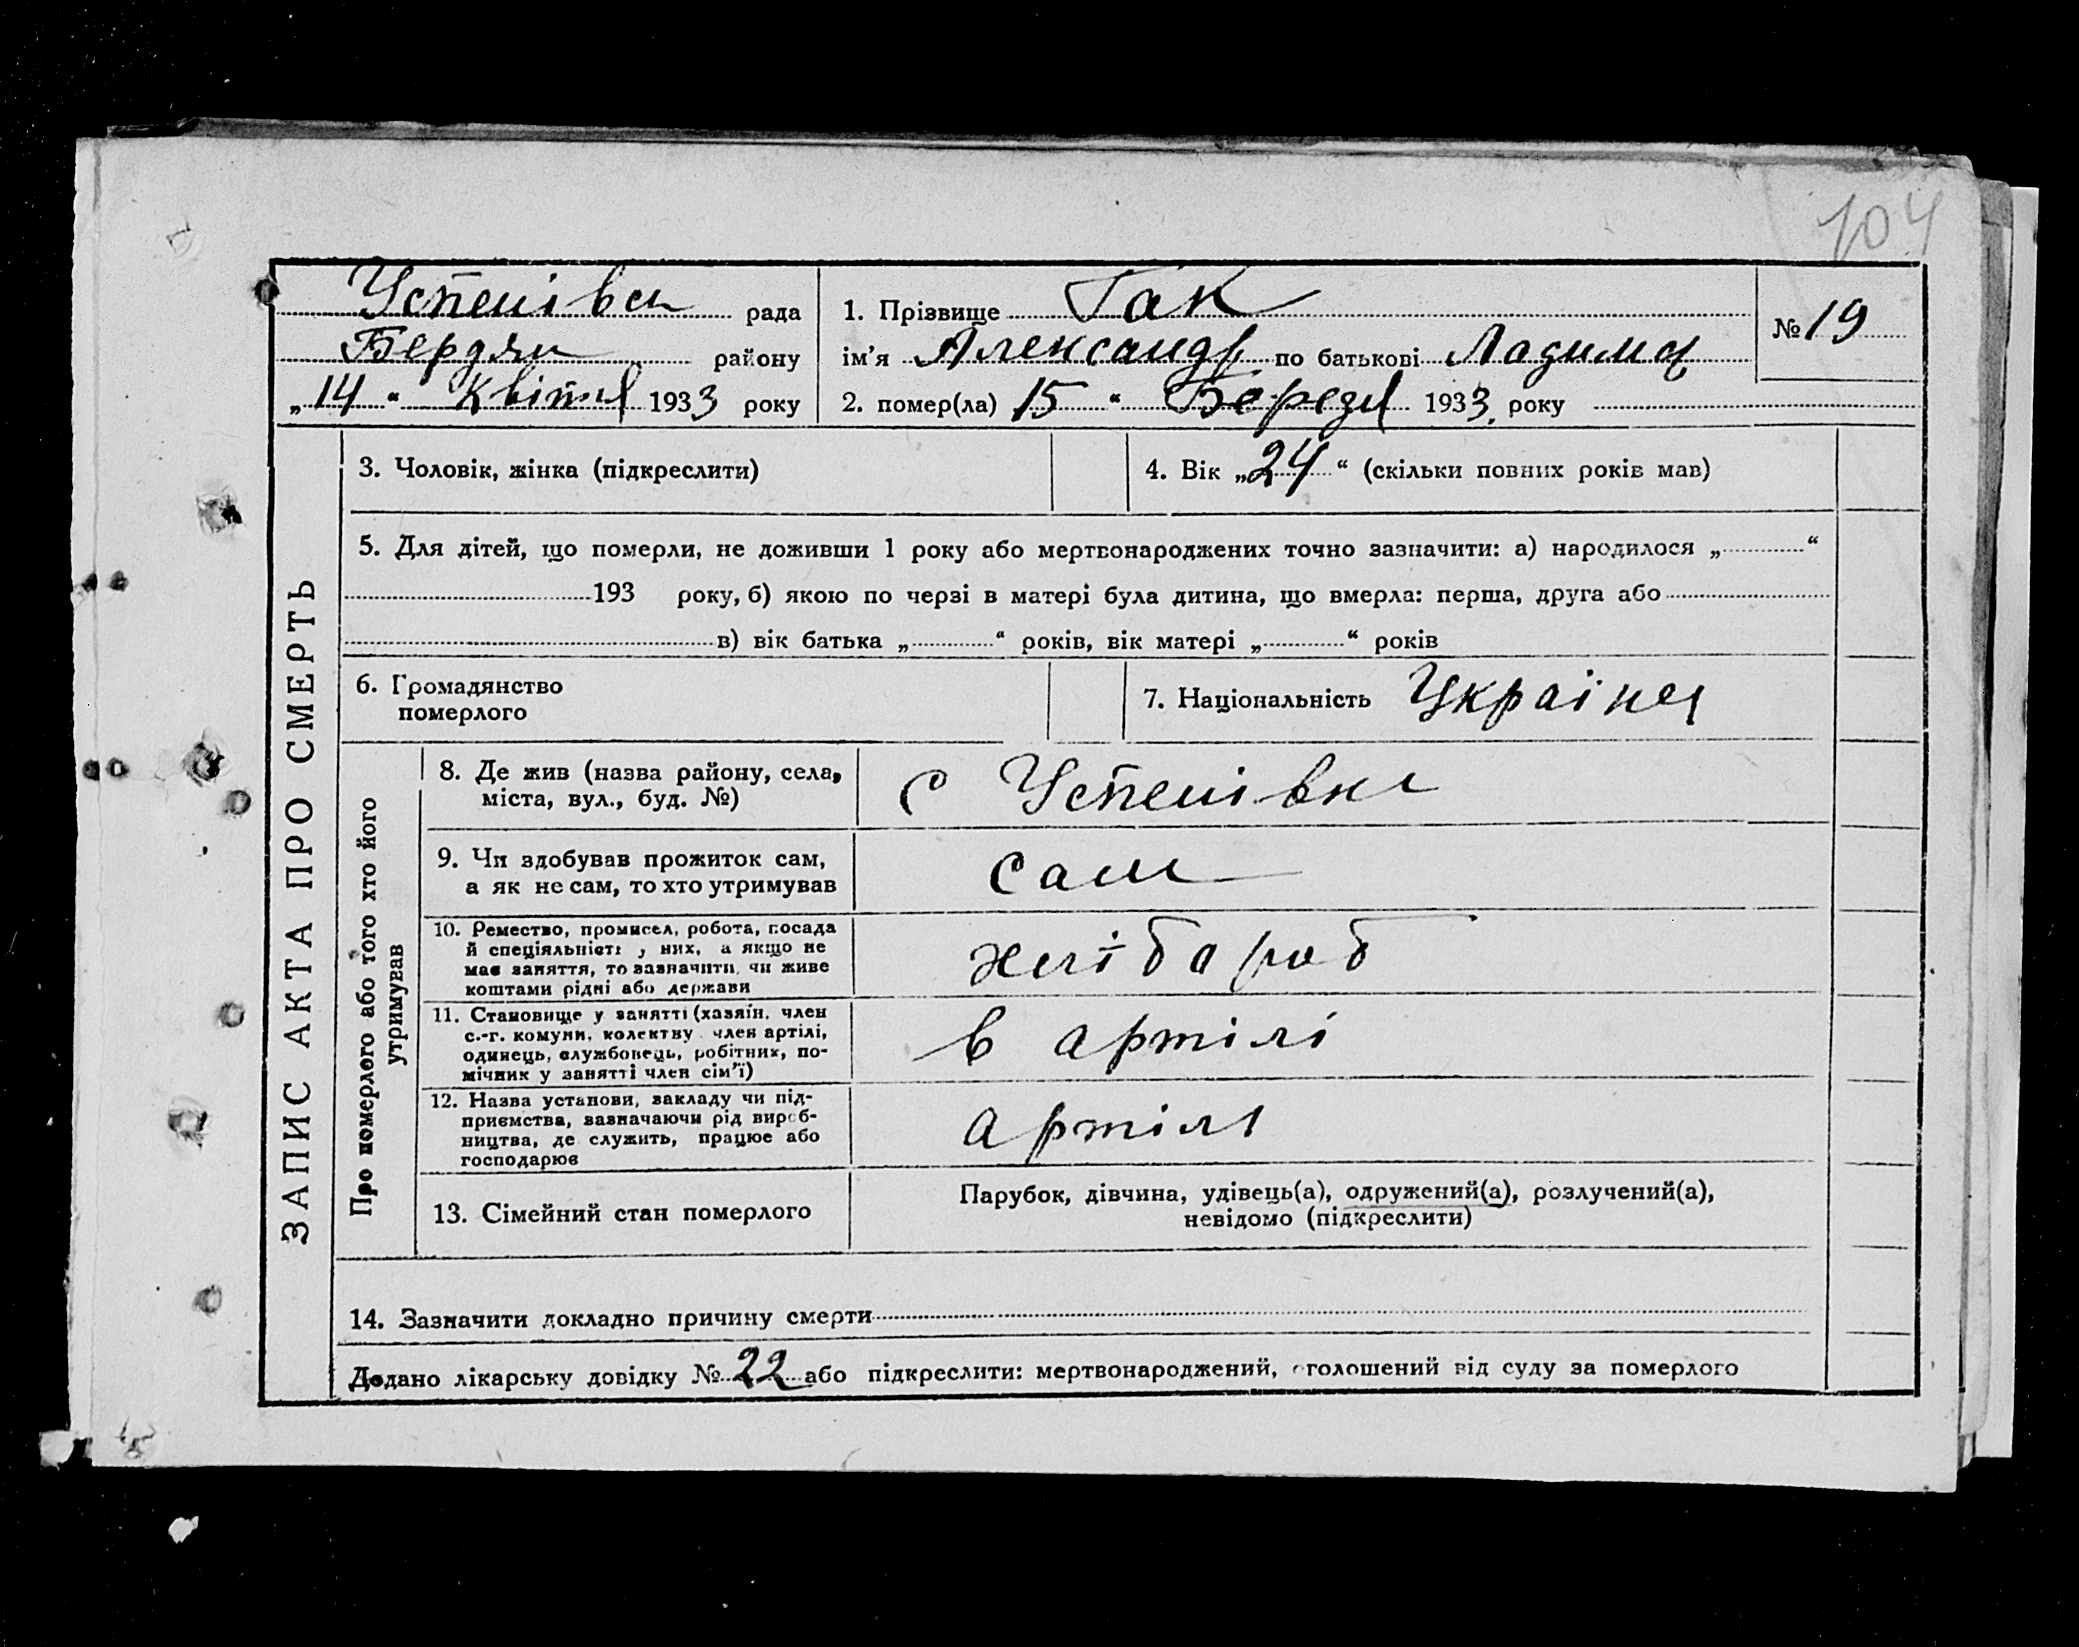 104
Успенівськ рада
Бердян району
„14“ Квітня 1933 року
1. Прізвище Гак
ім’я Александр по батькові
2. помер(ла) 15 “ Березн 1933 року
№ 19
ЗАПИС АКТА ПРО СМЕРТЬ
3. Чоловік, жінка (підкреслити)
4. Вік „24“ (скільки повних років мав)
5. Для дітей, що померли, не доживши 1 року або мертвонароджених точно зазначити: а) народилося „ “
193 року, б) якою по черзі в матері була дитина, що вмерла: перша, друга або
в) вік батька „ “ років, вік матері „ “ років
6. Громадянство
померлого
7. Національність Україне
Про померлого або того хто його
утримував
8. Де жив (назва району, села,
міста, вул., буд. №)
с Успенівка
9. Чи здобував прожиток сам,
а як не сам, то хто утримував
сам
10. Ремество, промисел, робота, посада
й спеціяльність у них, а якщо не
має заняття, то зазначити, чи живе
коштами рідні або держави
хлібороб
11. Становище у занятті (хазяїн, член
с.-г. комуни, колективу член артілі,
одинець, службовець, робітник, по-
мічник у занятті член сім’ї)
в артілі
12. Назва установи, закладу чи під-
приємства, зазначаючи рід вироб-
ництва, де служить, працює або
господарює
артіль
13. Сімейний стан померлого
Парубок, дівчина, удівець(а), одружений(а), розлучений(а),
невідомо (підкреслити)
14. Зазначити докладно причину смерти
Додано лікарську довідку № 22 або підкреслити: мертвонароджений, оголошений від суду за померлого